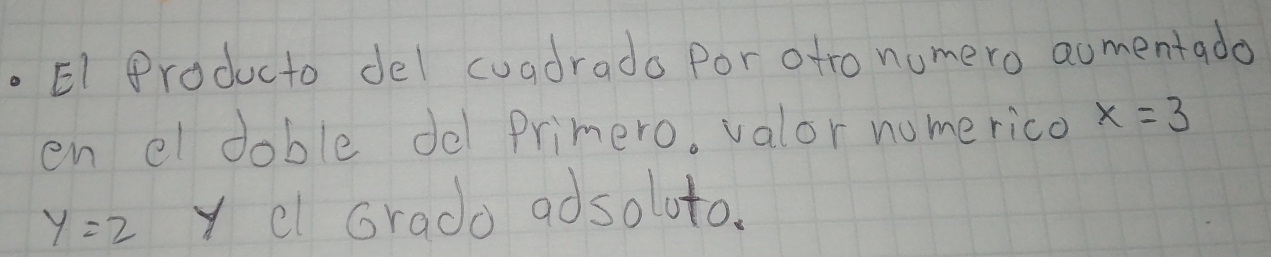 • El Producto del cuadrado Por otro numero aumentado
en el doble del Primero. valor numerico x = 3
y = 2 y el Grado adsoluto.